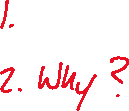 1.
2. Why?